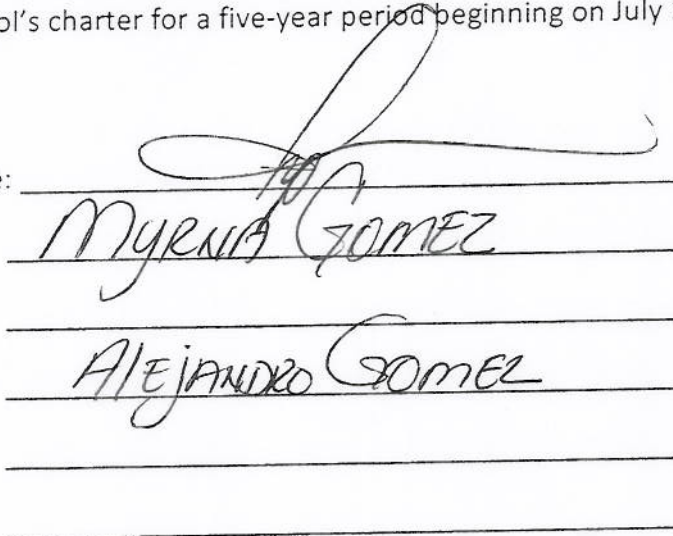 ol's charter for a five-year period beginning on July
e:
Myrna Gomez
Alejandro Gomez